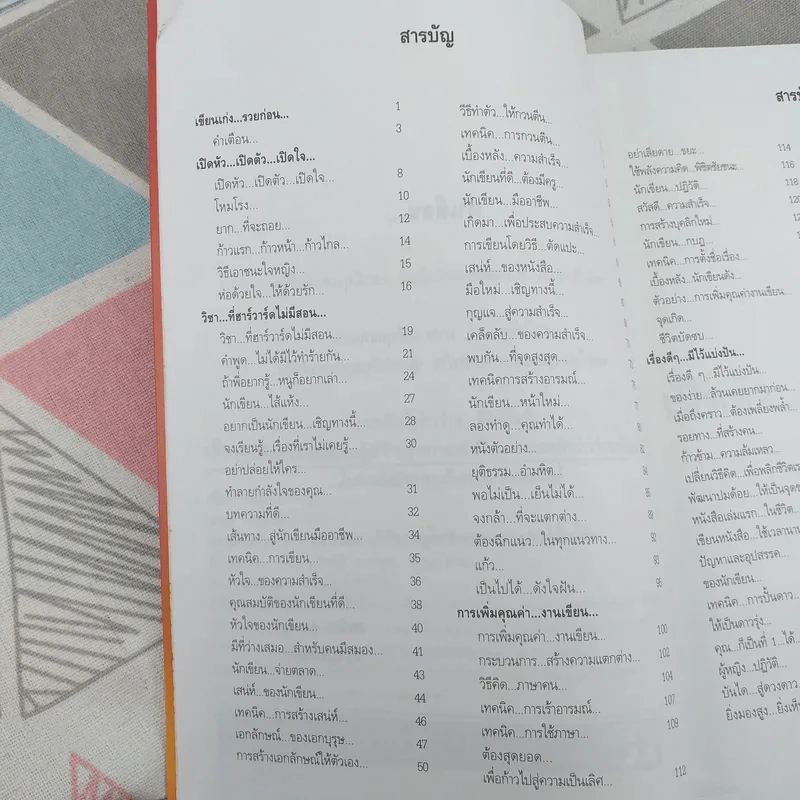 สารบัญ
เขียนเก่ง...รวยก่อน... 1
คำเตือน... 3
เปิดหัว...เปิดตัว...เปิดใจ...
เปิดหัว...เปิดตัว...เปิดใจ... 8
โหมโรง... 10
ยาก...ที่จะถอย... 12
ก้าวแรก...ก้าวหน้า...ก้าวไกล... 14
วิธีเอาชนะใจหญิง... 15
ห่อด้วยใจ...ให้ด้วยรัก... 16
วิชา...ที่ฮาร์วาร์ดไม่มีสอน...
วิชา...ที่ฮาร์วาร์ดไม่มีสอน... 19
คำพูด...ไม่ได้มีไว้ทำร้ายกัน... 21
ถ้าพี่อยากรู้...หนูก็อยากเล่า... 24
นักเขียน...ไส้แห้ง... 27
อยากเป็นนักเขียน...เชิญทางนี้... 28
จงเรียนรู้...เรื่องที่เราไม่เคยรู้... 30
อย่าปล่อยให้ใคร...
ทำลายกำลังใจของคุณ... 31
บทความที่ดี... 32
เส้นทาง...สู่นักเขียนมืออาชีพ... 34
เทคนิค...การเขียน... 35
หัวใจ...ของความสำเร็จ... 36
คุณสมบัติของนักเขียนที่ดี... 38
หัวใจของนักเขียน... 40
มีที่ว่างเสมอ...สำหรับคนมีสมอง... 41
นักเขียน...จ่ายตลาด... 43
เสน่ห์...ของนักเขียน... 44
เทคนิค...การสร้างเสน่ห์... 46
เอกลักษณ์...ของเอกบุรุษ... 47
การสร้างเอกลักษณ์ให้ตัวเอง... 50
วิธีทำตัว...ให้กวนตีน...
เทคนิค...การกวนตีน...
เบื้องหลัง...ความสำเร็จ...
นักเขียนที่ดี...ต้องมีครู...
นักเขียน...มืออาชีพ...
เกิดมา...เพื่อประสบความสำเร็จ...
การเขียนโดยวิธี...ตัดแปะ...
เสน่ห์...ของหนังสือ...
มือใหม่...เชิญทางนี้...
กุญแจ...สู่ความสำเร็จ...
เคล็ดลับ...ของความสำเร็จ...
พบกัน...ที่จุดสูงสุด...
เทคนิคการสร้างอารมณ์...
นักเขียน...หน้าใหม่...
ลองทำดู...คุณทำได้...
หนังตัวอย่าง...
ยุติธรรม...อำมหิต...
พอไม่เป็น...เย็นไม่ได้...
จงกล้า...ที่จะแตกต่าง...
ต้องฉีกแนว...ในทุกแนวทาง...
แก้ว...
เป็นไปได้...ดังใจฝัน... 95
การเพิ่มคุณค่า...งานเขียน...
การเพิ่มคุณค่า...งานเขียน... 100
กระบวนการ...สร้างความแตกต่าง... 102
วิธีคิด...ภาษาคน... 104
เทคนิค...การเร้าอารมณ์... 107
เทคนิค...การใช้ภาษา... 109
ต้องสุดยอด...
เพื่อก้าวไปสู่ความเป็นเลิศ... 112
อย่าเสียดาย...ขยะ... 114
ใช้พลังความคิด...พิชิตชัยชนะ... 116
นักเขียน...ปฏิวัติ... 118
สวัสดี...ความสำเร็จ...
การสร้างบุคลิกใหม่...
นักเขียน...กบฏ...
เทคนิค...การตั้งชื่อเรื่อง...
เบื้องหลัง...นักเขียนดัง...
ตัวอย่าง...การเพิ่มคุณค่างานเขียน...
จุดเกิด...
ชีวิตบัดซบ...
เรื่องดีๆ...มีไว้แบ่งปัน...
เรื่องดี ๆ...มีไว้แบ่งปัน...
ของง่าย...ล้วนเคยยากมาก่อน...
เมื่อถึงคราว...ต้องเพลี่ยงพล้ำ...
รอยทาง...ที่สร้างคน...
ก้าวข้าม...ความล้มเหลว...
เปลี่ยนวิธีคิด...เพื่อพลิกชีวิต
พัฒนาปมด้อย...ให้เป็นจุด
หนังสือเล่มแรก...ในชีวิต...
เขียนหนังสือ...ใช้เวลา
ปัญหาและอุปสรรค...
ของนักเขียน...
เทคนิค...การปั้นดาว...
ให้เป็นดาวรุ่ง...
คุณ...ก็เป็นที่ 1...ได้...
ผู้หญิง...ปฏิวัติ...
บันได...สู่ดวงดาว...
ยิ่งมองสูง...ยิ่ง